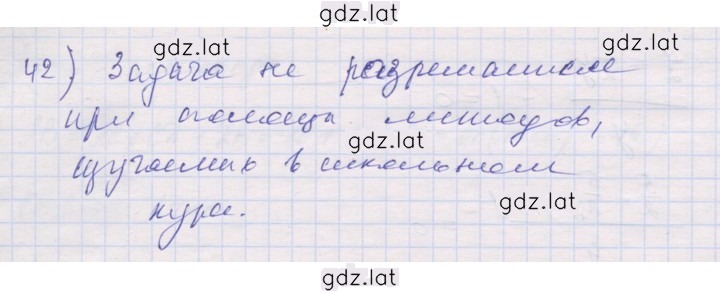 gdz.lat
gdz.lat
42) Задача не разрешаема
gdz.lat
при помощи методов,
gdz.lat
изучаемых в школьном
gdz.lat
курсе.
gdz.lat